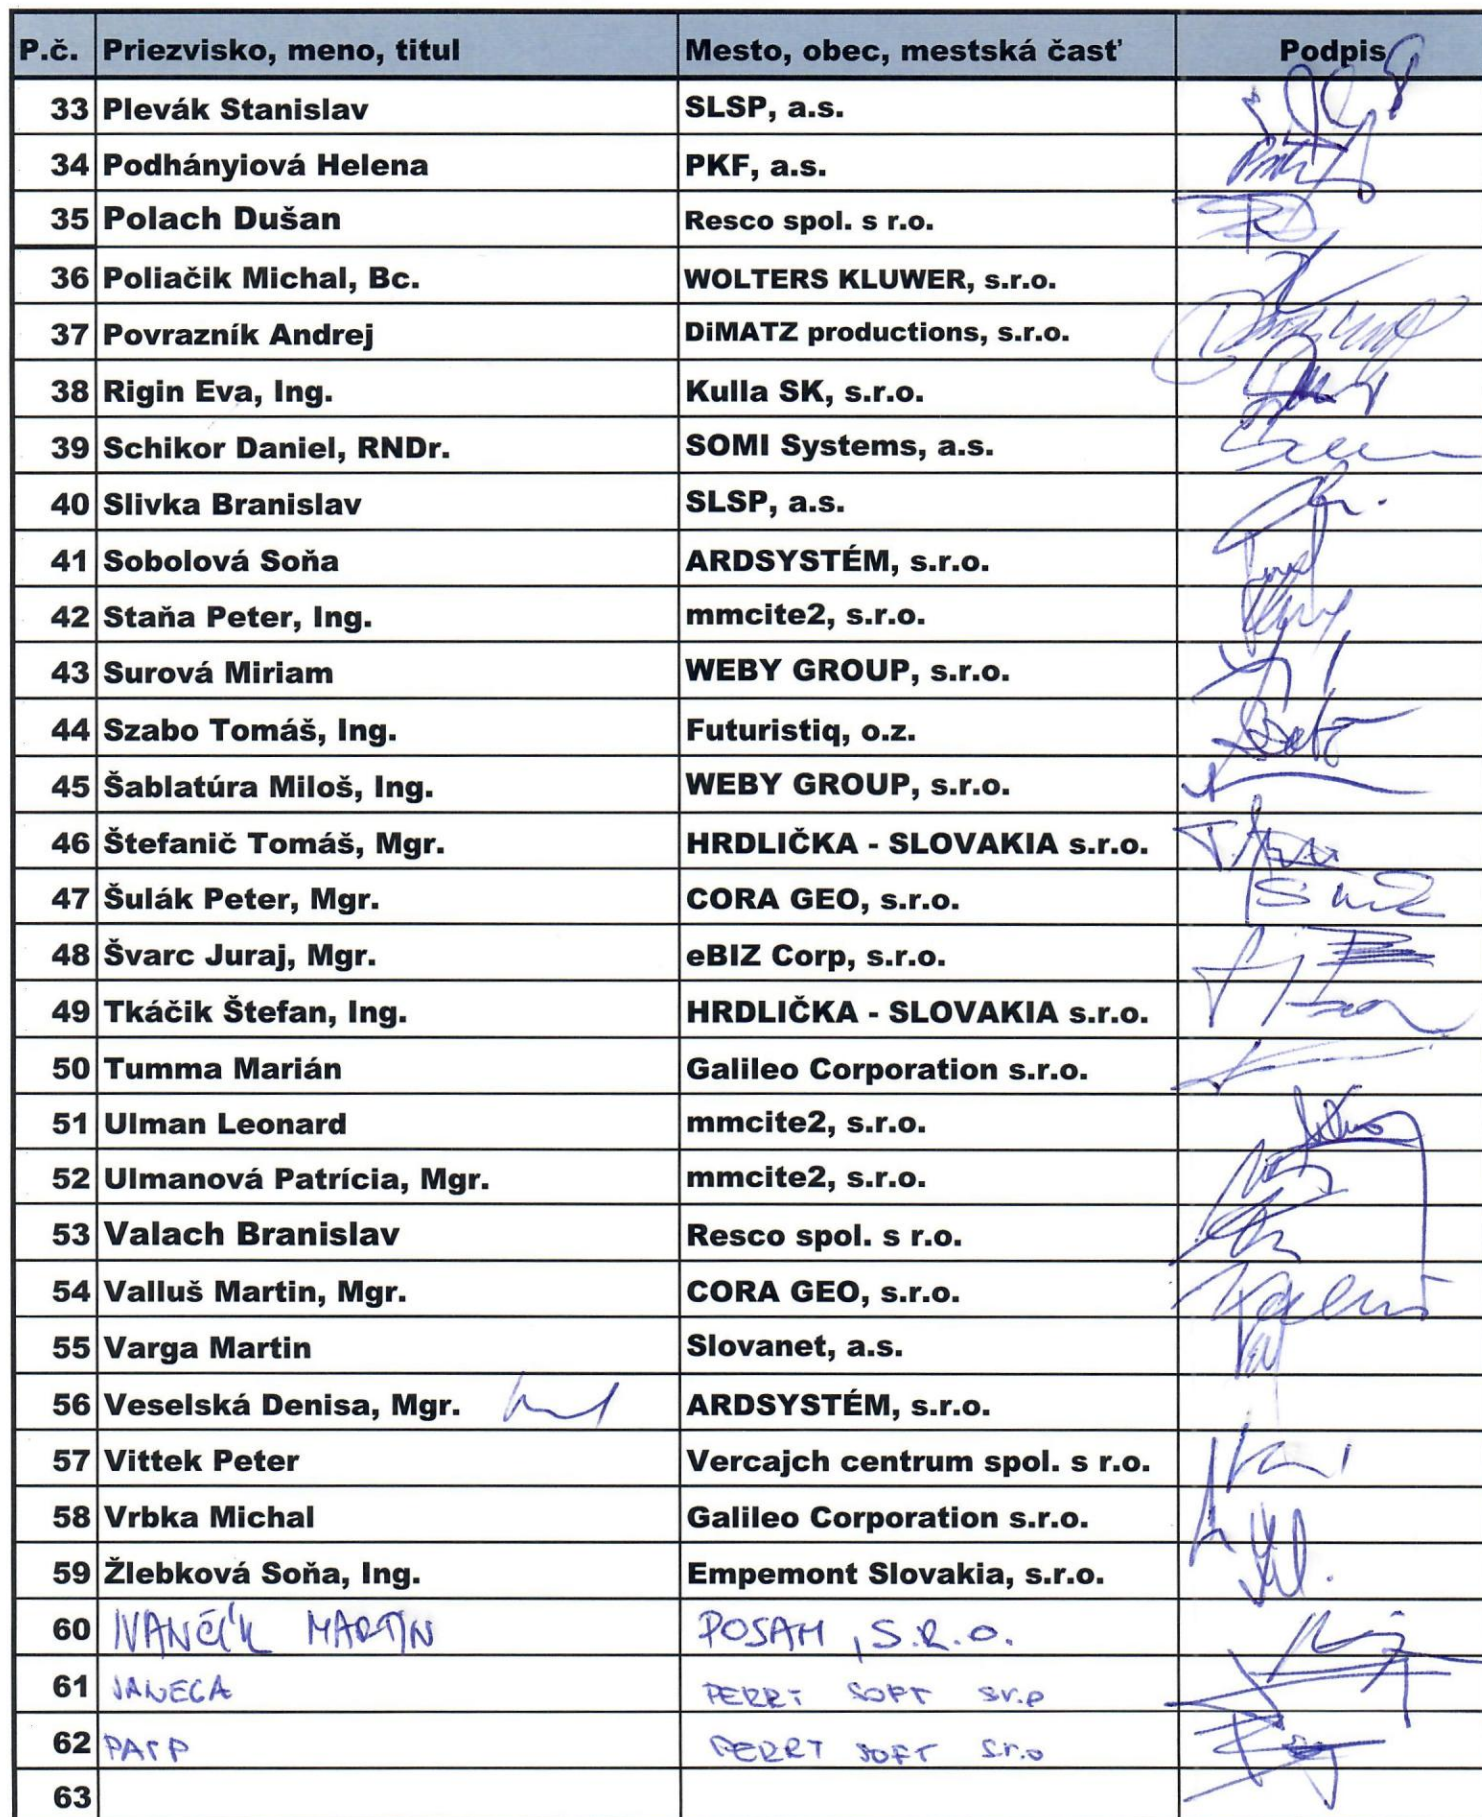 P.č. Priezvisko, meno, titul Mesto, obec, mestská časť Podpis
33 Plevák Stanislav SLSP, a.s.
34 Podhányiová Helena PKF, a.s.
35 Polach Dušan Resco spol. s r.o.
36 Poliačik Michal, Bc. WOLTERS KLUWER, s.r.o.
37 Povrazník Andrej DiMATZ productions, s.r.o.
38 Rigin Eva, Ing. Kulla SK, s.r.o.
39 Schikor Daniel, RNDr. SOMI Systems, a.s.
40 Slivka Branislav SLSP, a.s.
41 Sobolová Soňa ARDSYSTÉM, s.r.o.
42 Staňa Peter, Ing. mmcite2, s.r.o.
43 Surová Miriam WEBY GROUP, s.r.o.
44 Szabo Tomáš, Ing. Futuristiq, o.z.
45 Šablatúra Miloš, Ing. WEBY GROUP, s.r.o.
46 Štefanič Tomáš, Mgr. HRDLIČKA - SLOVAKIA s.r.o.
47 Šulák Peter, Mgr. CORA GEO, s.r.o.
48 Švarc Juraj, Mgr. eBIZ Corp, s.r.o.
49 Tkáčik Štefan, Ing. HRDLIČKA - SLOVAKIA s.r.o.
50 Tumma Marián Galileo Corporation s.r.o.
51 Ulman Leonard mmcite2, s.r.o.
52 Ulmanová Patrícia, Mgr. mmcite2, s.r.o.
53 Valach Branislav Resco spol. s r.o.
54 Valluš Martin, Mgr. CORA GEO, s.r.o.
55 Varga Martin Slovanet, a.s.
56 Veselská Denisa, Mgr. ARDSYSTÉM, s.r.o.
57 Vittek Peter Vercajch centrum spol. s r.o.
58 Vrbka Michal Galileo Corporation s.r.o.
59 Žlebková Soňa, Ing. Empemont Slovakia, s.r.o.
60 IVANČÍK MARTIN POSAM, S.R.O.
61 JANECA SOFT
62 PAPP SOFT s.r.o
63